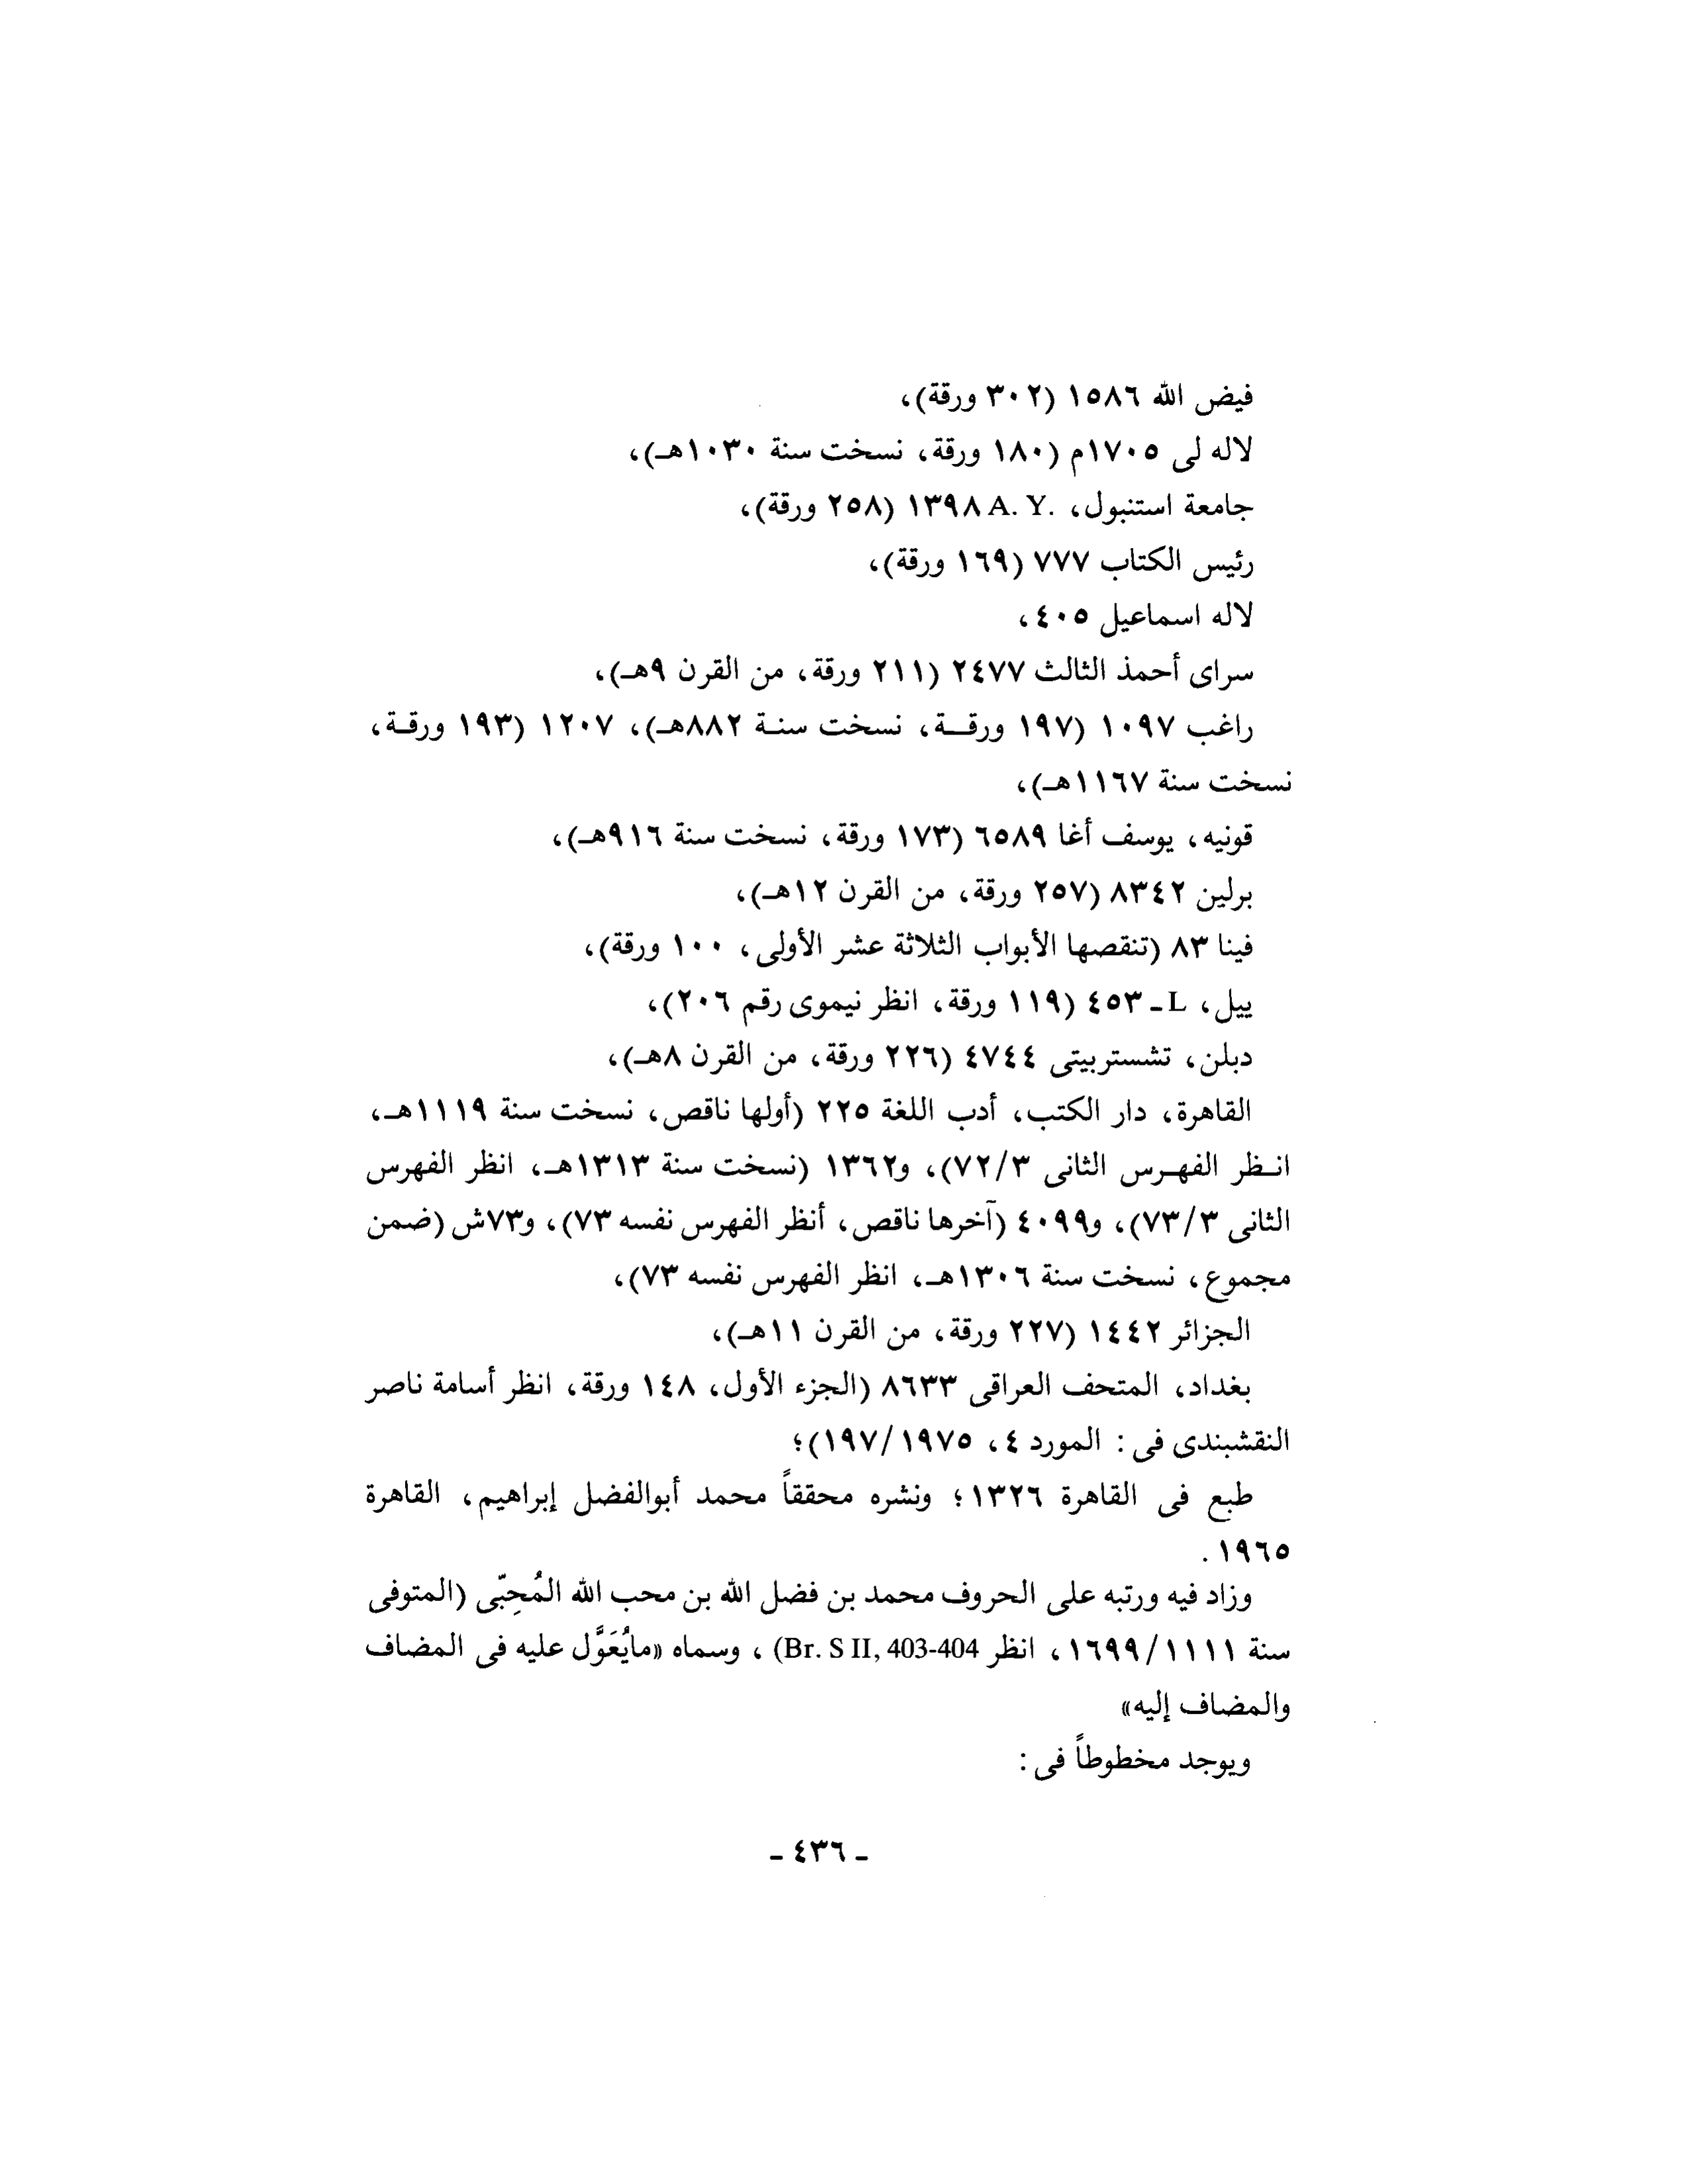 فيض الله ١٥٨٦ (٣٠٢ ورقة)،
لاله لى ١٧٠٥م (١٨٠ ورقة، نسخت سنة ١٠٣٠هـ)،
جامعة استنبول، .A. Y ١٣٩٨ (٢٥٨ ورقة)،
رئيس الكتاب ٧٧٧ (١٦٩ ورقة)،
لاله اسماعيل ٤٠٥،
سراى أحمذ الثالث ٢٤٧٧ (٢١١ ورقة، من القرن ٩هـ)،
راغب ١٠٩٧ (١٩٧ ورقـــة، نسخت سنـة ٨٨٢هـ)، ١٢٠٧ (١٩٣ ورقـة،
نسخت سنة ١١٦٧هـ)،
قونيه، يوسف أغا ٦٥٨٩ (١٧٣ ورقة، نسخت سنة ٩١٦هـ)،
برلين ٨٣٤٢ (٢٥٧ ورقة، من القرن ١٢هـ)،
فينا ٨٣ (تنقصها الأبواب الثلاثة عشر الأولى، ١٠٠ ورقة)،
ييل، L ـ ٤٥٣ (١١٩ ورقة، انظر نيموى رقم ٢٠٦)،
دبلن، تشستربيتى ٤٧٤٤ (٢٢٦ ورقة، من القرن ٨هـ)،
القاهرة، دار الكتب، أدب اللغة ٢٢٥ (أولها ناقص، نسخت سنة ١١١٩هـ،
انـظر الفهـرس الثانى ٧٢/٣)، و١٣٦٢ (نسخت سنة ١٣١٣هـ، انظر الفهرس
الثانى ٧٣/٣)، و٤٠٩٩ (آخرها ناقص، أنظر الفهرس نفسه ٧٣)، و٧٣ش (ضمن
مجموع، نسخت سنة ١٣٠٦هـ، انظر الفهرس نفسه ٧٣)،
الجزائر ١٤٤٢ (٢٢٧ ورقة، من القرن ١١هـ)،
بغداد، المتحف العراقى ٨٦٣٣ (الجزء الأول، ١٤٨ ورقة، انظر أسامة ناصر
النقشبندى فى : المورد ٤، ١٩٧/١٩٧٥)؛
طبع فى القاهرة ١٣٢٦؛ ونشره محققاً محمد أبوالفضل إبراهيم، القاهرة
١٩٦٥ .
وزاد فيه ورتبه على الحروف محمد بن فضل الله بن محب الله المُحِبّى (المتوفى
سنة ١٦٩٩/١١١١، انظر Br. S II, 403-404) ، وسماه «مايُعَوَّل عليه فى المضاف
والمضاف إليه»
ويوجد مخطوطاً فى :
ـ ٤٣٦ ـ